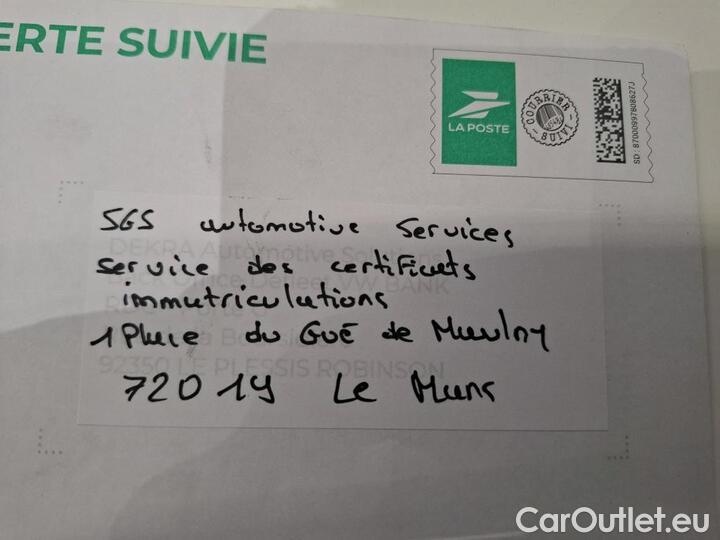 ERTE SUIVIE
LA POSTE
COURRIER
SUIVI
SD : 87000997808627J
SGS automotive Services
DEKRA Automotive Solutions
service des certificats
Back Office Défleet VW BANK
immatriculations
1 Place du GUÉ de Maulny
92350 LE PLESSIS ROBINSON
72019 Le Mans
CarOutlet.eu